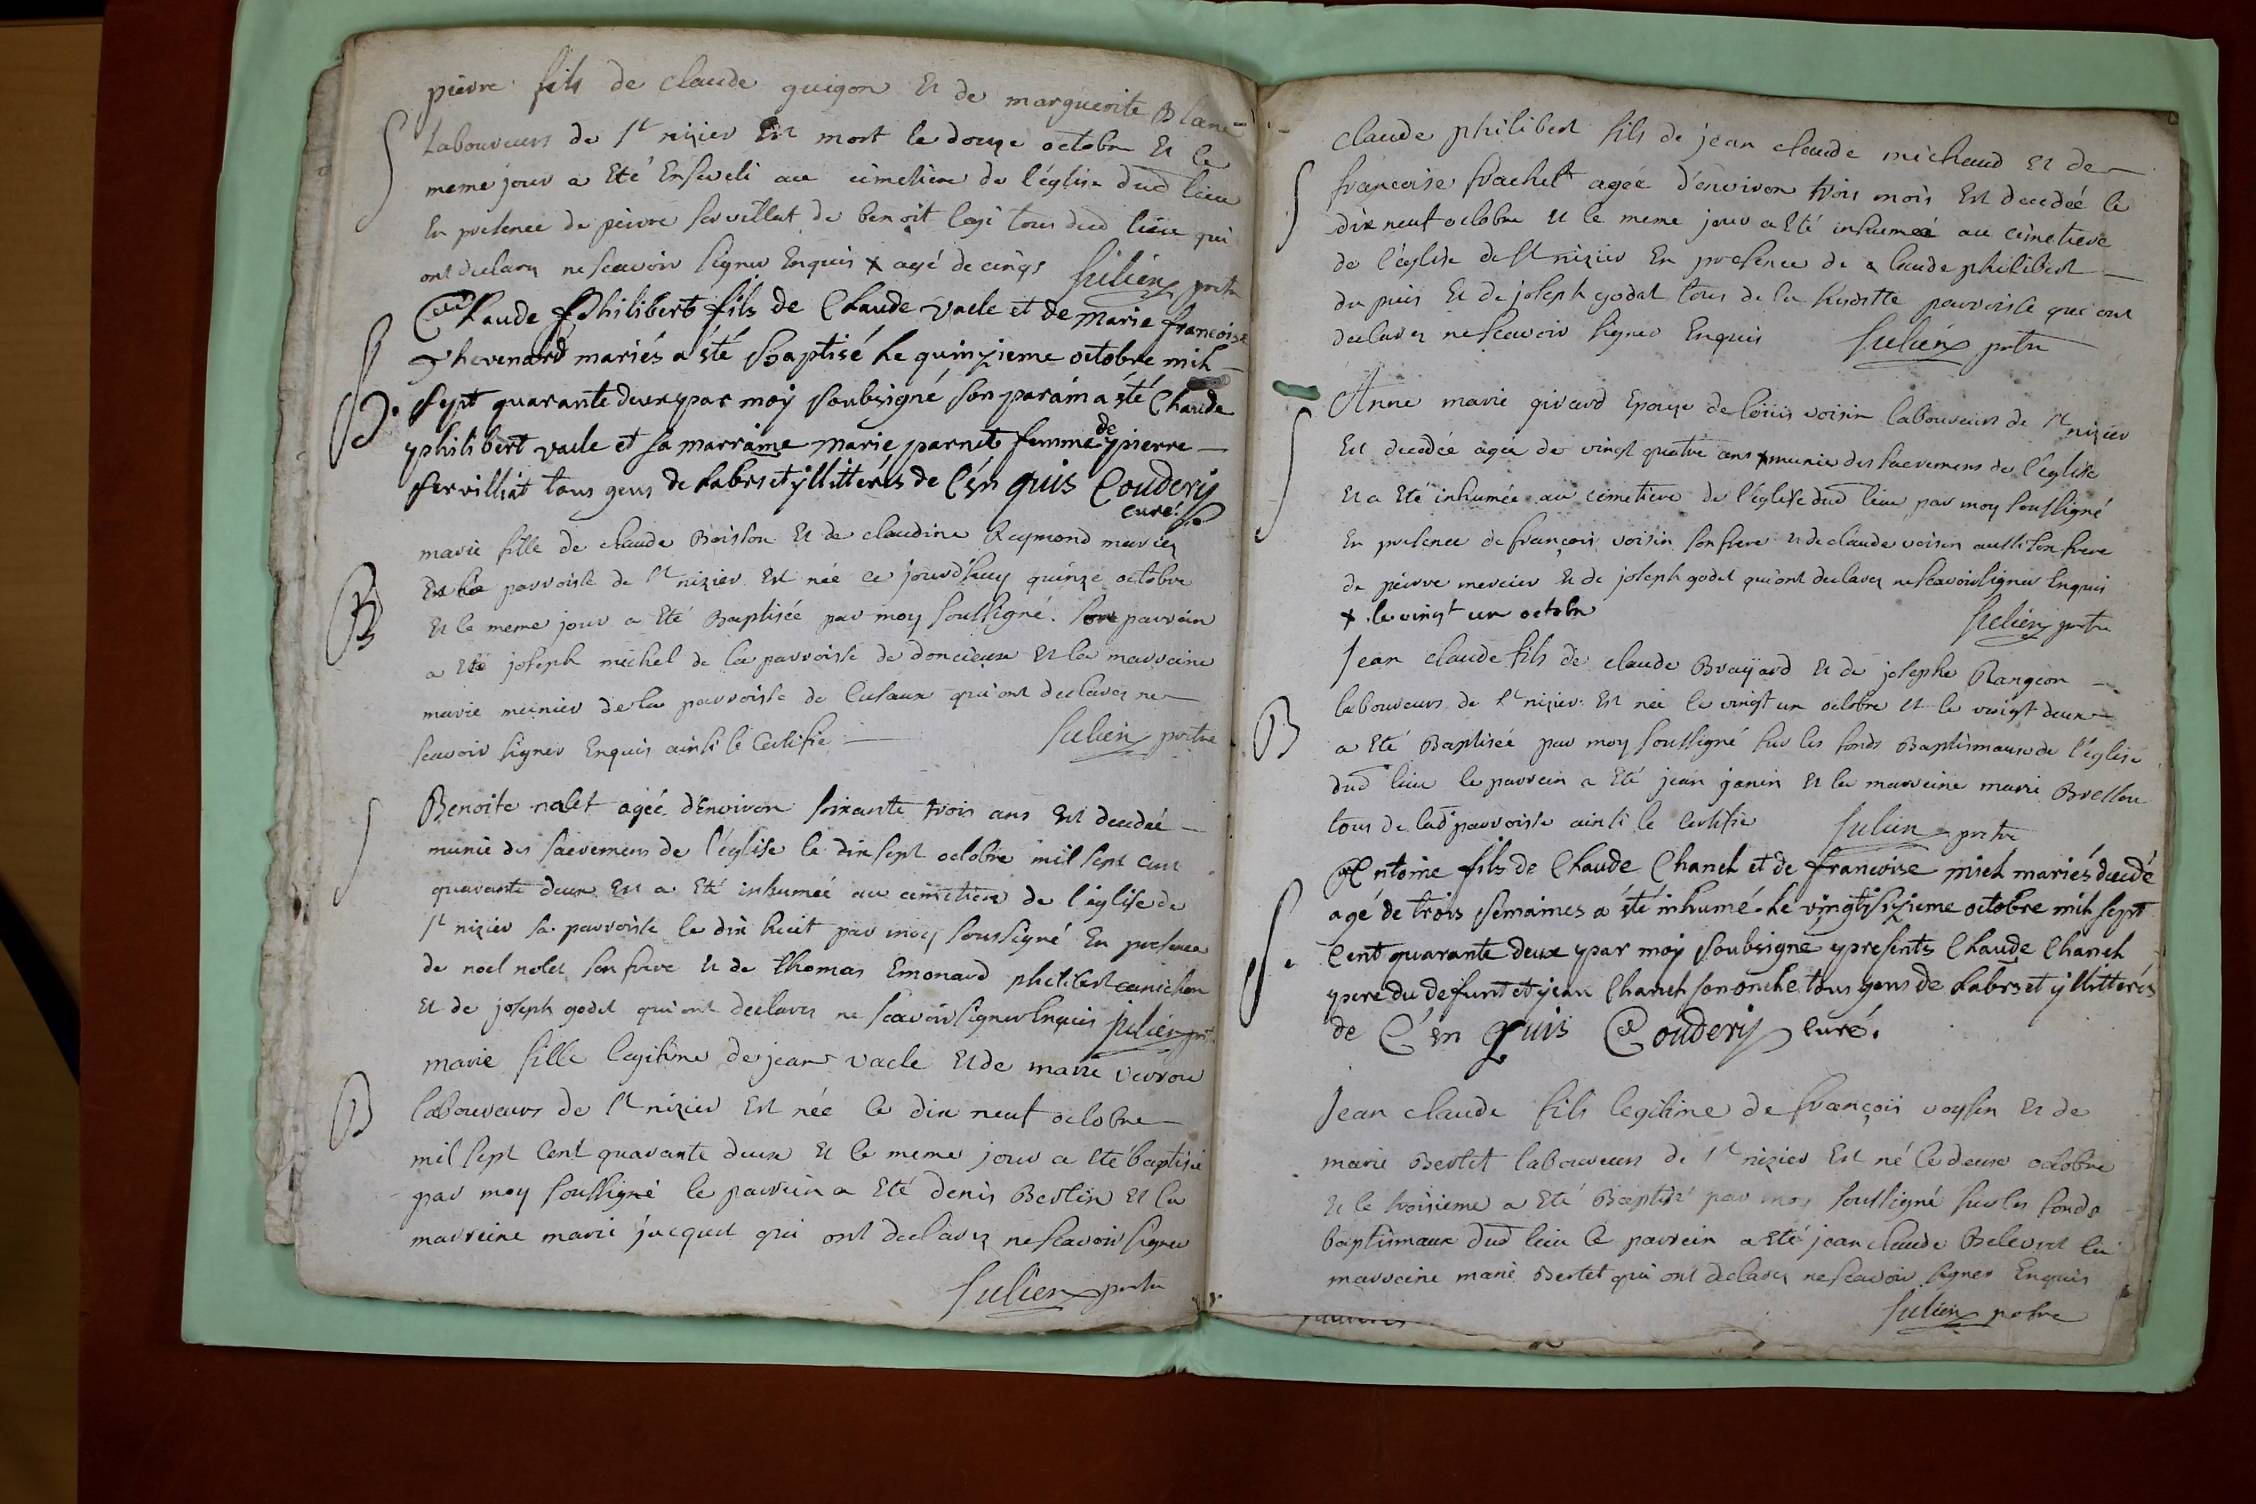 pierre fils de claude guigon Et de marguerite Blanc
S
Laboureurs de St nizier Est mort le douze octobre Et le
meme jour a Eté Enseveli au cimetiere de l'église dud lieu
En presence de pierre servillat de benoit loji tous dud lieu qui
ont declarez ne scavoir signer Enquis x agé de cinqs Julien prtre
Claude Philibert fils de Claude vacle et de marie francoise
Chevenard mariés a été Baptisé le quinzieme octobre mil
B.
sept quarante deux par moy soubsigné, son parain a été Claude
philibert vacle et sa marraine marie parnet femme de pierre
servilliat tous gens de Labrs et yllittérés de Cén quis Coudery
curé.
marie fille de claude Boisson Et de claudine Reymond mariez
B
de la parroisse de St nizier Est née ce jourdhuy quinze octobre
Et le meme jour a Eté Baptisée par moy soussigné. son parrain
a Eté joseph michel de la parroisse de doncieux Et la marraine
marie meinier de la parroisse de Cusaux qui ont declarez ne
scavoir signer Enquis ainsi le Certifie Julien prtre
S
Benoite nalet agée d'Environ soixante trois ans Est decedée
munie des sacremens de l'église le dix sept octobre mil sept cent
quarante deux Est a Eté inhumée au cimetiere de l'église de
St nizier sa parroisse le dix huit par moy soussigné En presence
de noel nolet son frere Et de thomas Emonard philibert canichon
Et de joseph godet qui ont declarez ne scavoir signer Enquis Julien prt
marie fille legitime de jean vacle Et de marie verrou
B
laboureurs de St nizier Est née le dix neuf octobre
mil sept cent quarante deux Et le meme jour a Eté baptisée
par moy soussigné le parrein a Eté denis Bertin Et la
marreine marie jacquet qui ont declarez ne scavoir signer
Julien prtre
claude philibert fils de jean claude michaud Et de
S
françoise frachet agée d'environ trois mois Est decedée le
dix neuf octobre Et le meme jour a Eté inhumée au cimetiere
de l'église de St nizier En presence de claude philibert
du puis Et de joseph godat tous de la susditte parroisse qui ont
declarez ne scavoir signer Enquis Julien prtre
S
Anne marie girard Epouse de louis voisin laboureurs de St nizier
Est decedée agée de vingt quatre ans x munie des sacremens de l'église
Et a Eté inhumée au cimetiere de l'église dud lieu par moy soussigné
En presence de françois voisin son frere Et de claude voisin aussi son frere
de pierre mercier Et de joseph godet qui ont declarez ne scavoir signer Enquis
x le vingt un octobre Julien prtre
Jean claude fils de claude Brayard Et de josephe Rangeon
B
laboureurs de St nizier Est née le vingt un octobre Et le vingt deux
a Eté Baptisée par moy soussigné sur les fonds Baptismaux de l'église
dud lieu le parrein a Eté jean janin Et la marreine marie Bressou
tous de lad parroisse ainsi le certifie Julien prtre
Antoine fils de Claude Chanel et de francoise miel mariés decedé
agé de trois semaines a été inhumé le vingt sixieme octobre mil sept
S.
Cent quarante deux par moy soubsigné presents Claude Chanel
pere du defunt et jean Chanel son oncle tous gens de Labrs et yllittérés
de Cén quis Coudery curé.
Jean claude fils legitime de françois voysin Et de
marie Bertet laboureurs de St nizier Est né le deux octobre
Et le troisieme a Eté Baptisé par moy soussigné sur les fonds
baptismaux dud lieu le parrein a Eté jean claude Belevret la
marraine marie Bertet qui ont declarez ne scavoir signer Enquis
Julien prtre